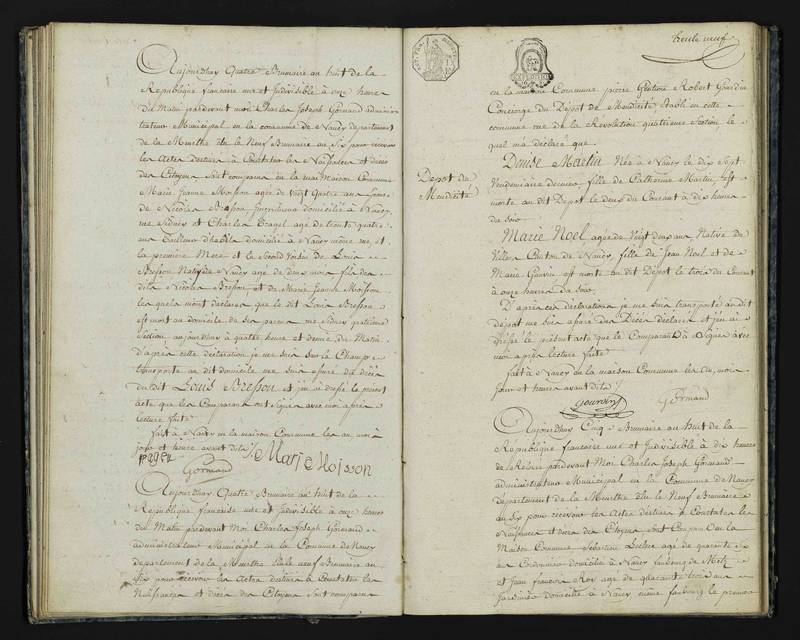 Aujourdhuy Quatre Brumaire an huit de la
République francaise une et Indivisible à onze heures
du Matin pardevant moi Charles Joseph Gormand adminis
trateur Municipal en la commune de Nancy departement
de la Meurthe élu le Neuf Brumaire an Six pour recevoir
les Actes destinés à Constater les Naissances et décès
des Citoyens Sont comparus en la maison Commune
Marie Jeanne Moisson agée de Vingt Quatre ans Epouse
de Nicolas Bresson domiciliée à Nancy
rue Sidney et Charles agé de trente quatre
ans Tailleur d'habits domicilié à Nancy même rue et
la première Mere et le Second Voisin de Louis
Bresson Natif de Nancy agé de deux mois fils des
dits Nicolas Bresson et de Marie Jeanne Moisson
lesquels m'ont déclaré que le dit Louis Bresson
est mort au domicile de ses parens rue Sidney quatrieme
Section aujourdhuy à quatre heures et demie du Matin
d'après cette déclaration je me suis sur le Champ
transporté au dit domicile me suis assuré du décès
du dit Louis Bresson et j'en ai dressé le présent
acte que les Comparans ont Signé avec moi après
lecture faite
fait à Nancy en la maison Commune les an mois
jour et heure avant dits
Marie Moisson
Gormand
Aujourdhuy Quatre Brumaire an huit de la
République francaise une et Indivisible à onze heures
du Matin pardevant Moi Charles Joseph Gormand
administrateur Municipal en la Commune de Nancy
departement de la Meurthe élu le neuf Brumaire an
Six pour recevoir les Actes destinés à Constater les
Naissances et décès des Citoyens Sont comparus
trente neuf
en la maison Commune pierre Robert Gourdin
Concierge du Dépot de Mendicité établi en cette
commune rue de la Révolution quatrieme Section le
quel m'a déclaré que
Depot de
Mendicité
Denise Martin Née à Nancy le dix Sept
Vendemiaire dernier, fille de Catherine Martin, est
morte au dit Depot le deux du Courant à dix heures
du soir
Marie Noel agée de Vingt deux ans Native de
Villers Canton de Nancy, fille de Jean Noel et de
Marie est morte au dit Dépot le trois du Courant
à onze heures du soir
D'après ces déclarations je me suis transporté au dit
depot me suis assuré des Décès déclarés et j'en ai
dressé le présent acte que le Comparant à Signé avec
moi après lecture faite
fait à Nancy en la maison Commune les an, mois
jour et heures avant dits
Gormand
Aujourdhuy Cinq Brumaire an huit de la
République francaise une et Indivisible à dix heures
pardevant Moi Charles Joseph Gormand
administrateur Municipal en la Commune de Nancy
departement de la Meurthe élu le Neuf Brumaire
an Six pour recevoir les Actes destinés à Constater les
Naissances et décès des Citoyens Sont Comparus en la
Maison Commune Sébastien Leclerc agé de quarante Six
ans Cordonnier domicilié à Nancy faubourg de Metz
et Jean francois Roy agé de quarante trois ans
Jardinier domicilié à Nancy même faubourg le premier